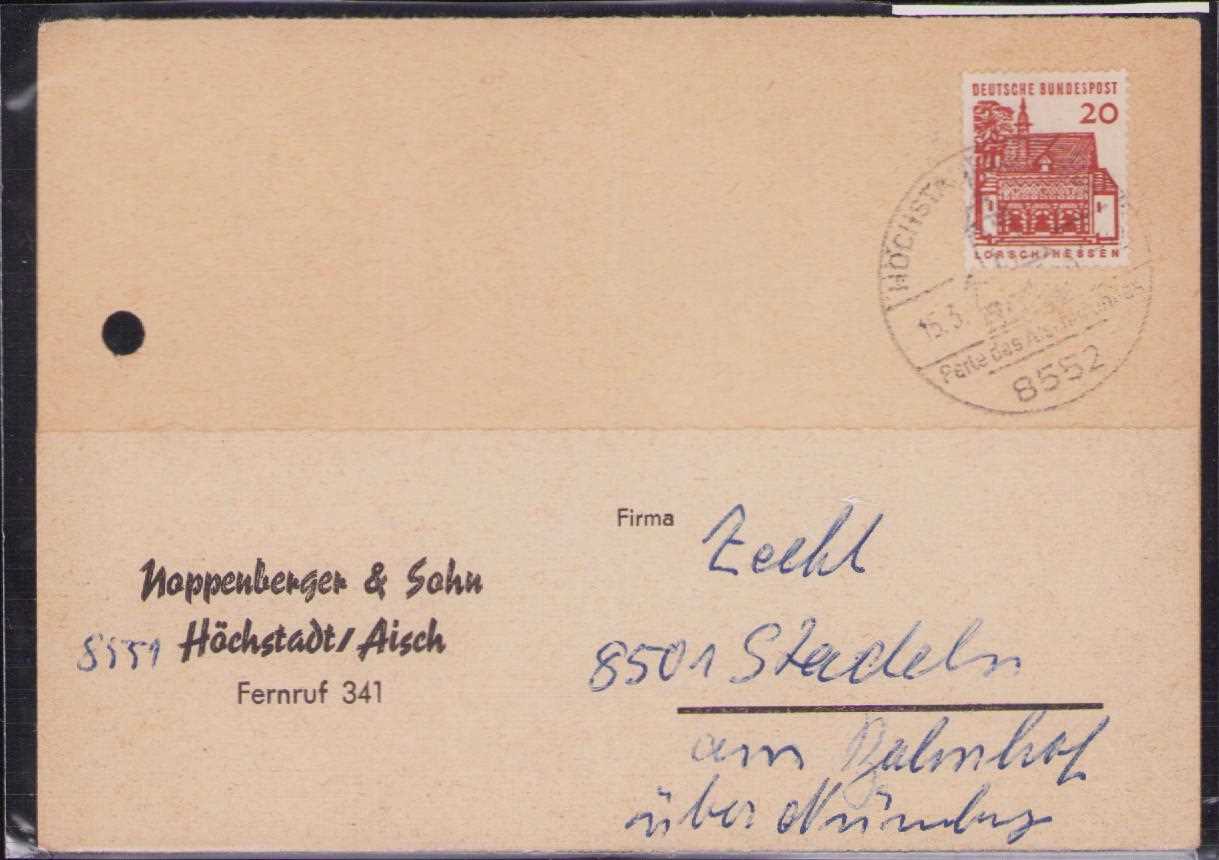 DEUTSCHE BUNDESPOST
20
LORSCH/HESSEN
HÖCHSTA
15.3.
Perle des Aischgrundes
8552
Firma
Noppenberger & Sohn
8551 Höchstadt/Aisch
Fernruf 341
8501 Stadeln
am Bahnhof
über Nürnbg